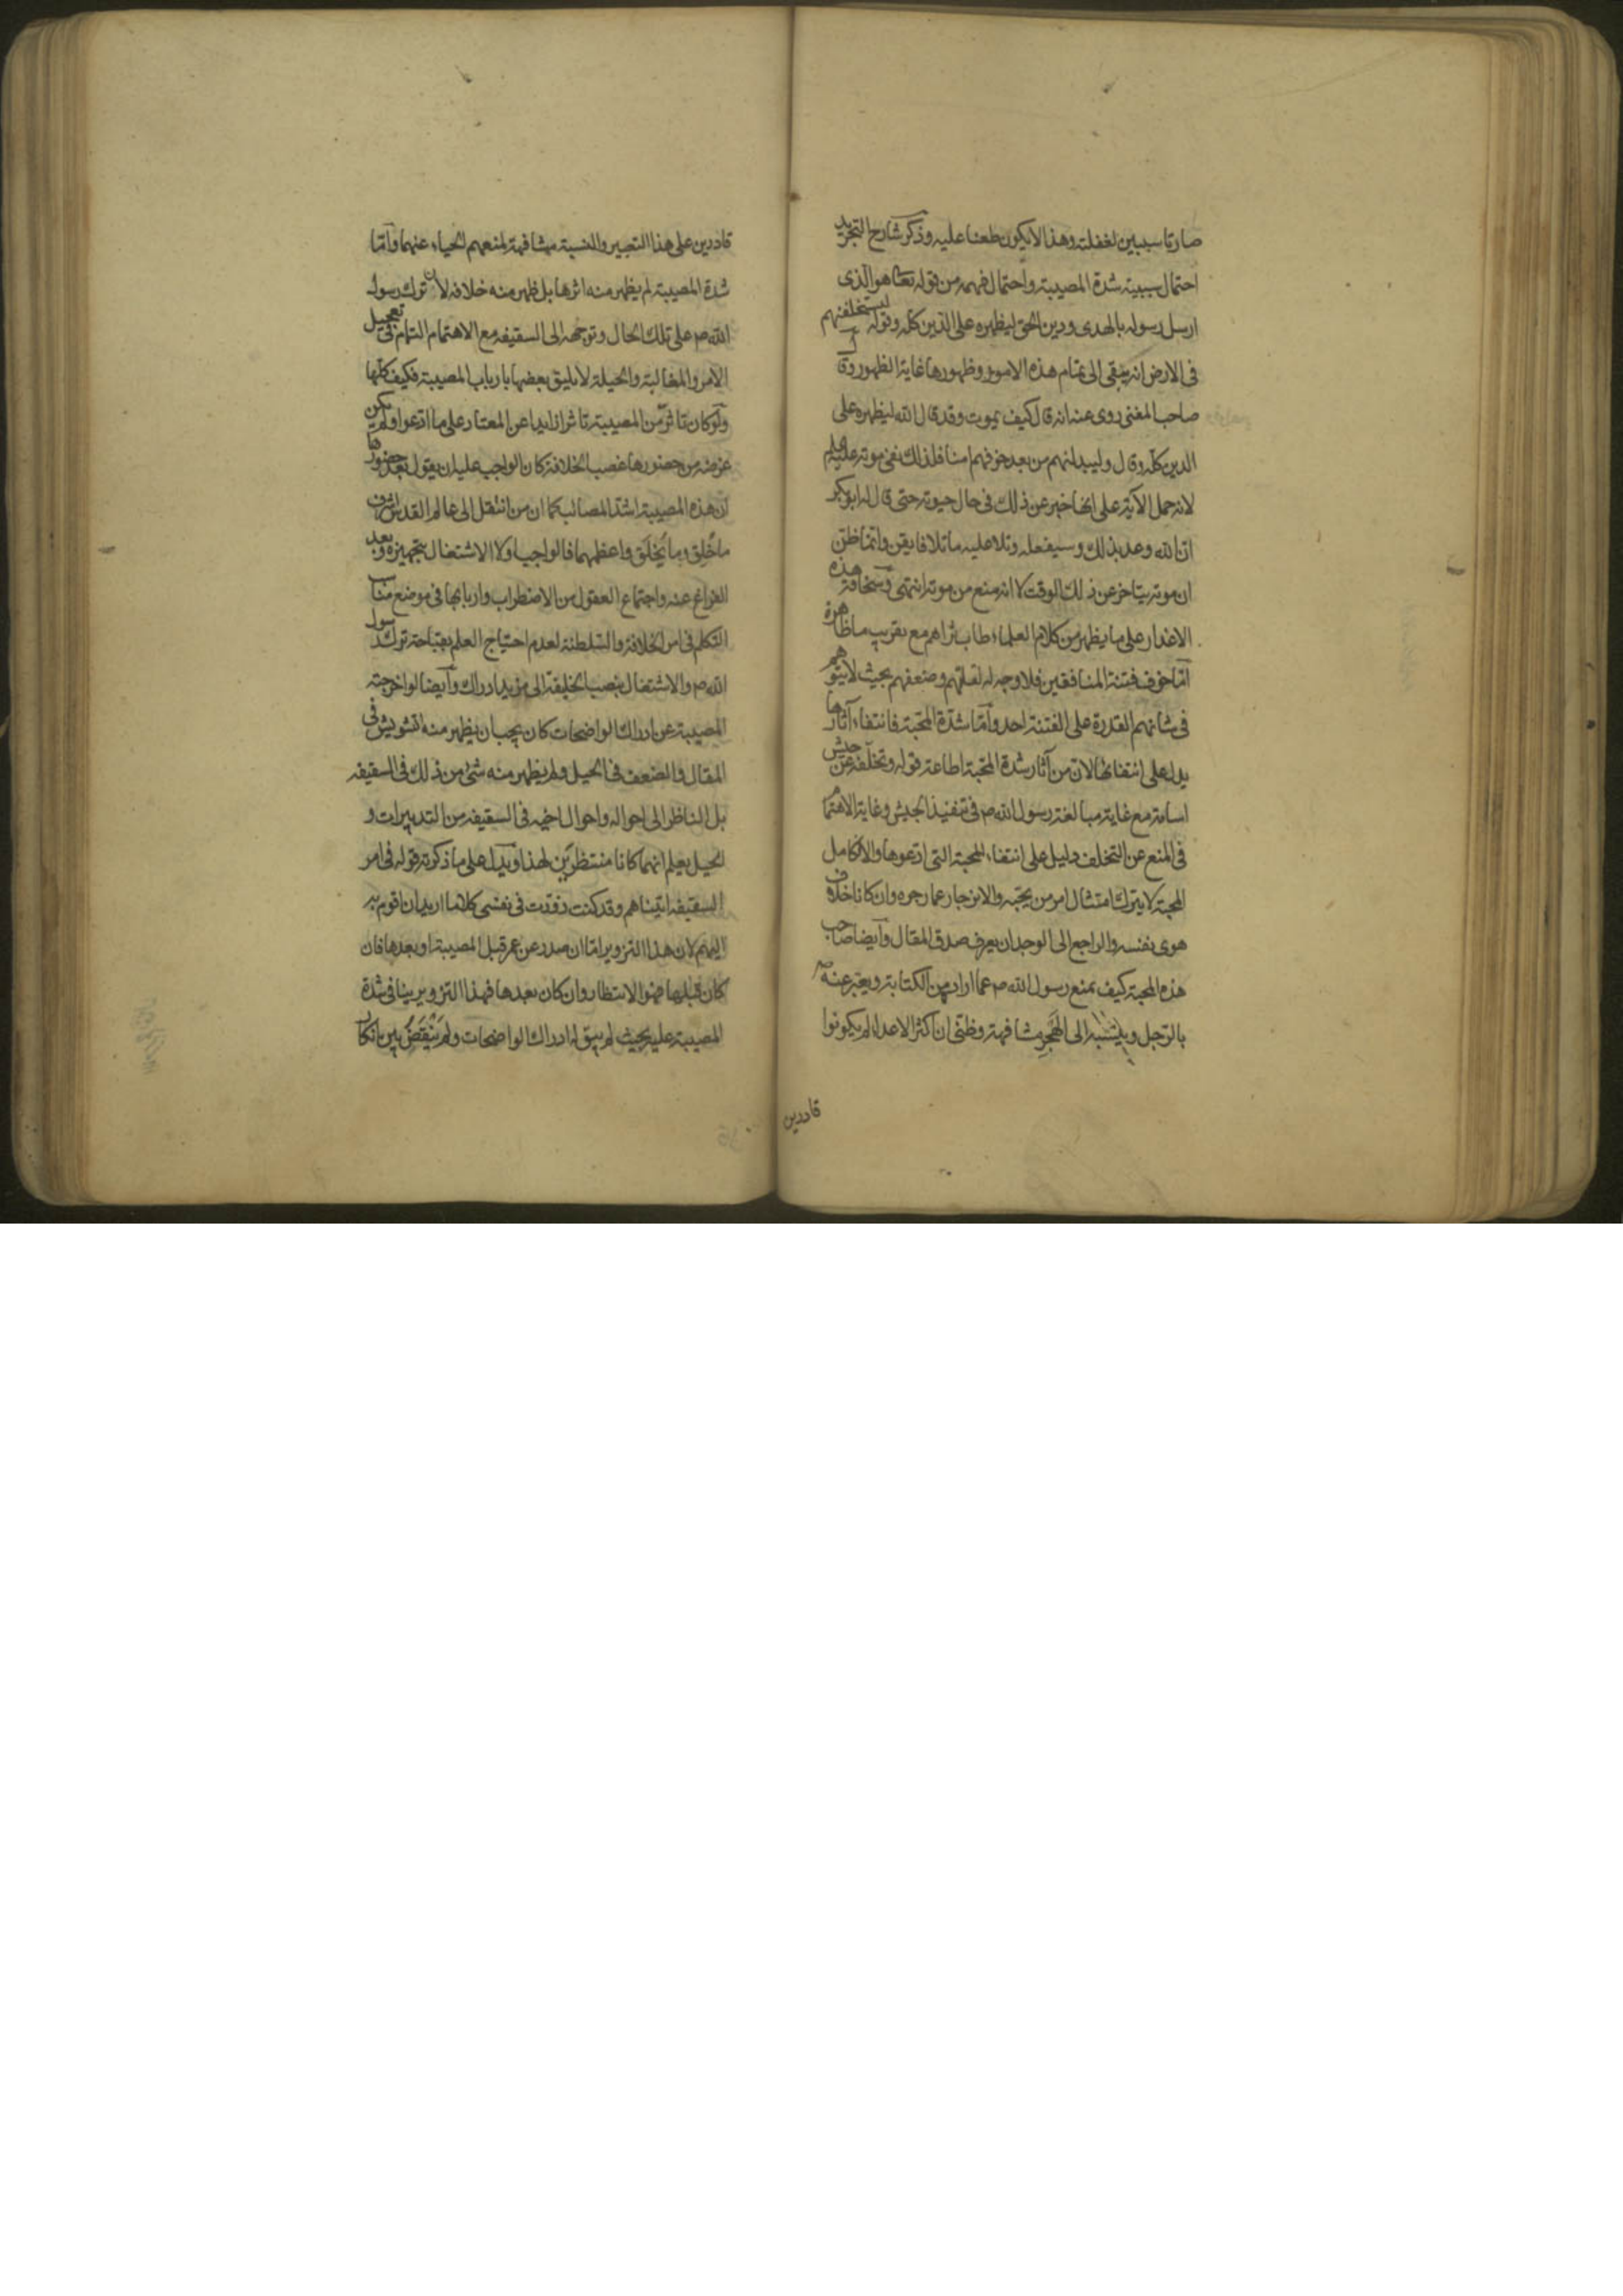 صارتا سببين لغفلته وهذا لا يكون طعنا عليه وذكر شارح التجريد
احتمال سببية شدة المصيبة واحتمال فهمه من قوله تعالى هو الذى
ارسل رسوله بالهدى ودين الحق ليظهره على الدين كله وقوله ليستخلفنهم
فى الارض انه يبقى الى تمام هذه الامور وظهورها غاية الظهور وقال
صاحب المغنى روى عنه انه قال كيف يموت وقد قال الله ليظهره على
الدين كله وقال وليبدلنهم من بعد خوفهم امنا فلذلك نفى موته عليه السلام
لانه حمل الآية على انها خبر عن ذلك فى حال حيوته حتى قال له ابوبكر
ان الله وعد بذلك وسيفعله وتلا عليه ما تلا فايقن وانما ظن
ان موته يتاخر عن ذلك الوقت لا انه منع من موته انتهى وسخافة هذه
الاعذار على ما يظهر من كلام العلماء طاب ثراهم مع تقريب ما ظاهرة
اما خوف فتنة المنافقين فلا وجه له لقلتهم وضعفهم بحيث لا يتوهم
فى شانهم القدرة على الفتنة احد واما شدة المحبة فانتفاء آثارها
يدل على انتفائها لان من آثار شدة المحبة اطاعة قوله وتخلفه عن جيش
اسامة مع غاية مبالغة رسول الله ص فى تنفيذ الجيش وغاية الاهتمام
فى المنع عن التخلف دليل على انتفاء المحبة التى ادعوها والا كامل
المحبة لا يترك امتثال امر من يحبه والانزجار عما زجره وان كانا خلاف
هوى نفسه والراجع الى الوجدان يعرف صدق المقال وايضا صاحب
هذه المحبة كيف يمنع رسول الله ص عما اراد من الكتابة ويعبر عنه ص
بالرجل وينسبه الى الهجر مشافهة وظنى ان اكثر الاعداء لم يكونوا
قادرين
قادرين على هذا التعبير والنسبة مشافهة لمنعهم الحياء عنهما واما
شدة المصيبة لم يظهر منه اثرها بل ظهر منه خلافه لان ترك رسول
الله ص على تلك الحال وتوجهه الى السقيفه مع الاهتمام التام فى تعجيل
الامر والمغالبة والحيلة لا يليق بعضها بارباب المصيبة فكيف كلها
ولو كان تاثر من المصيبة تاثرا زايدا عن المعتاد على ما ادعوا ولم يكن
غرضه من حضورها غصب الخلافة كان الواجب عليه ان يقول بعد حضورها
ان هذه المصيبة اشد المصائب كما ان من انتقل الى عالم القدس اشرف
ما خُلِق وما يُخلَق واعظمهما فالواجب اولا الاشتغال بتجهيزه وبعد
الفراغ عنه واجتماع العقول من الاضطراب واربابها فى موضع مناسب
التكلم فى امر الخلافة والسلطنة لعدم احتياج العلم بقباحة ترك رسول
الله ص والاشتغال بنصب الخليفة الى مزيد ادراك وايضا لو اخرجته
المصيبة عن ادراك الواضحات كان يجب ان يظهر منه التشويش فى
المقال والضعف فى الحيل ولم يظهر منه شئ من ذلك فى السقيفه
بل الناظر الى احواله واحوال اخيه فى السقيفه من التدبيرات و
الحيل يعلم انهما كانا منتظرين لهذا ويدل على ما ذكرته قوله فى امر
السقيفه اتيناهم وقد كنت زورت فى نفسى كلاما اريد ان اقوم به
اليهم لان هذا التزوير اما ان صدر عن عمر قبل المصيبة او بعدها فان
كان قبلها فهو الانتظار وان كان بعدها فهذا التزوير ينافى شدة
المصيبة عليه بحيث لم يبق له ادراك الواضحات ولم ينقض بين انكار